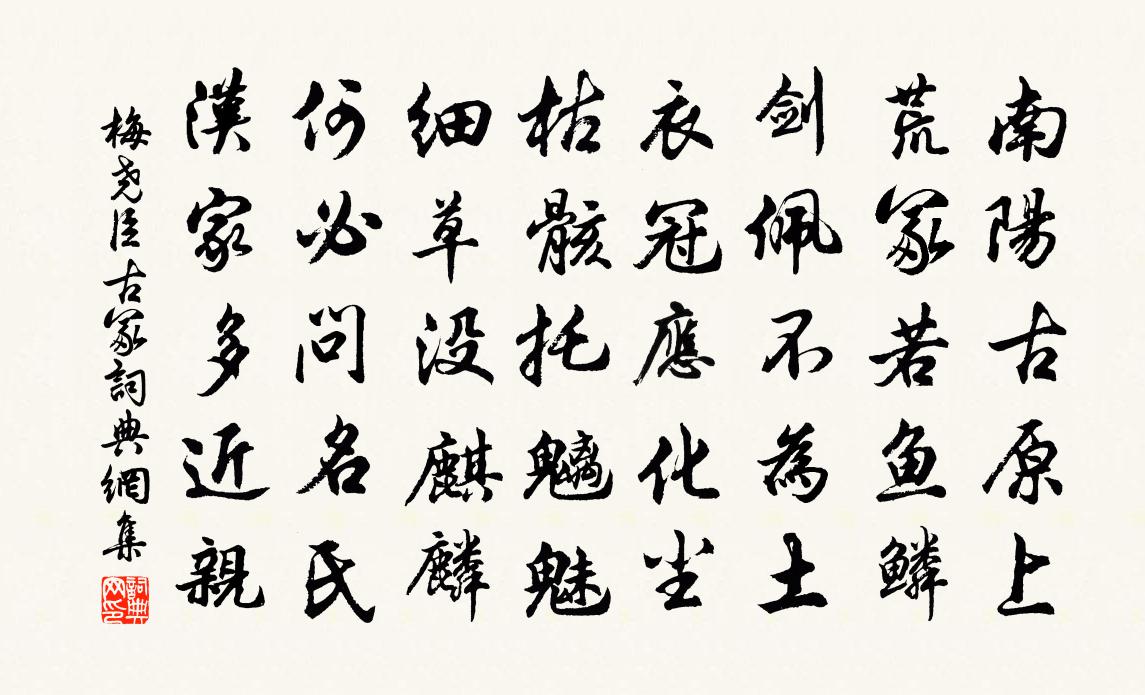 南陽古原上
荒冢若魚鱗
劍佩不為土
衣冠應化塵
枯骸托魑魅
細草没麒麟
何必問名氏
漢家多近親
梅堯臣古冢詞典網集
詞典网印